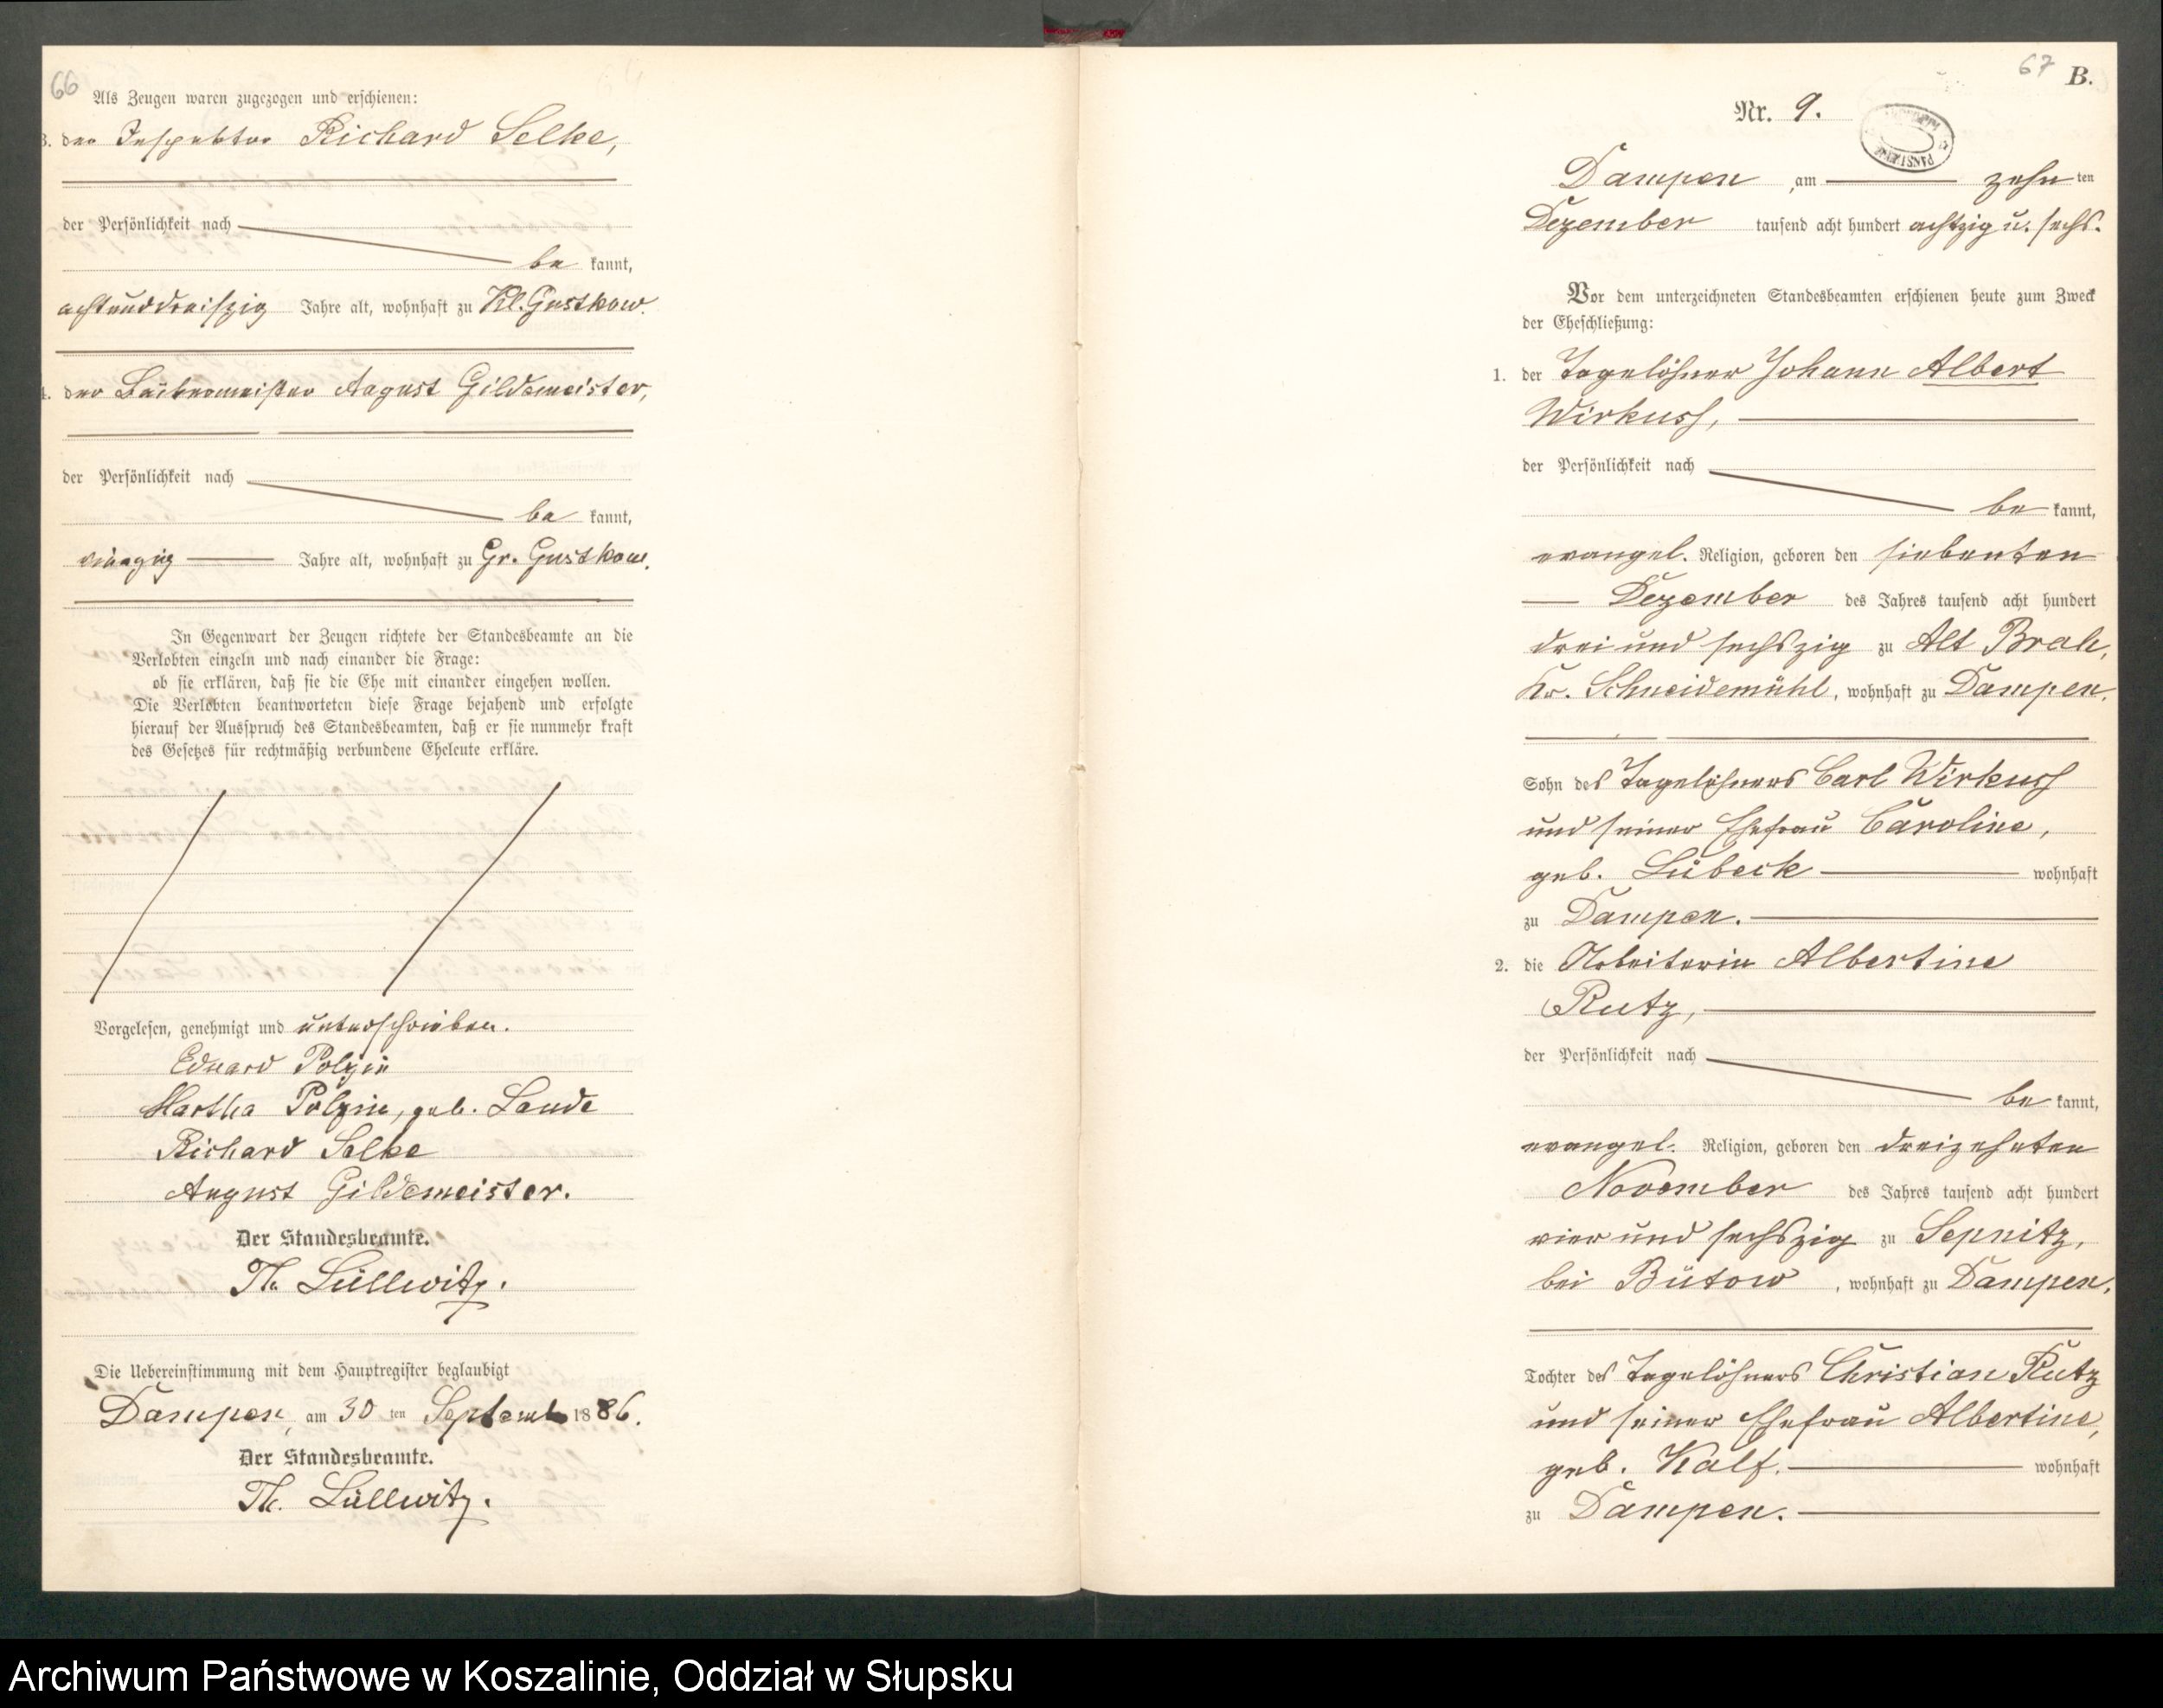 66
Als Zeugen waren zugezogen und erschienen:
3. der Inspektor Richard Selke,
der Persönlichkeit nach
be kannt,
achtunddreiszig Jahre alt, wohnhaft zu Kl. Gustkow.
4. der Bäckermeister August Gildemeister,
der Persönlichkeit nach
be kannt,
vierzig Jahre alt, wohnhaft zu Gr. Gustkow.
In Gegenwart der Zeugen richtete der Standesbeamte an die
Verlobten einzeln und nach einander die Frage:
ob sie erklären, daß sie die Ehe mit einander eingehen wollen.
Die Verlobten beantworteten diese Frage bejahend und erfolgte
hierauf der Ausspruch des Standesbeamten, daß er sie nunmehr kraft
des Gesetzes für rechtmäßig verbundene Eheleute erkläre.
Vorgelesen, genehmigt und unterschrieben.
Eduard Polzin
Martha Polzin, geb. Laude
Richard Selke
August Gildemeister.
Der Standesbeamte.
Th. Lüllwitz.
Die Uebereinstimmung mit dem Hauptregister beglaubigt
Dampen, am 30 ten Septemb 1886.
Der Standesbeamte.
Th. Lüllwitz.
67 B.
Nr. 9.
Dampen am zehn ten
Dezember tausend acht hundert achtzig u. sechs.
Vor dem unterzeichneten Standesbeamten erschienen heute zum Zweck
der Eheschließung:
1. der Tagelöhner Johann Albert
Wirkuss,
der Persönlichkeit nach
be kannt,
evangel. Religion, geboren den siebenten
Dezember des Jahres tausend acht hundert
drei und sechszig zu Alt Brah,
Kr. Schneidemühl, wohnhaft zu Dampen.
Sohn des Tagelöhners Carl Wirkuss
und seiner Ehefrau Caroline,
geb. Lübeck wohnhaft
zu Dampen.
2. die Arbeiterin Albertine
Rutz,
der Persönlichkeit nach
be kannt,
evangel. Religion, geboren den dreizehnten
November des Jahres tausend acht hundert
vier und sechszig zu Sepnitz,
bei Bütow, wohnhaft zu Dampen,
Tochter des Tagelöhners Christian Rutz
und seiner Ehefrau Albertine,
geb. Kalf. wohnhaft
zu Dampen.
Archiwum Państwowe w Koszalinie, Oddział w Słupsku